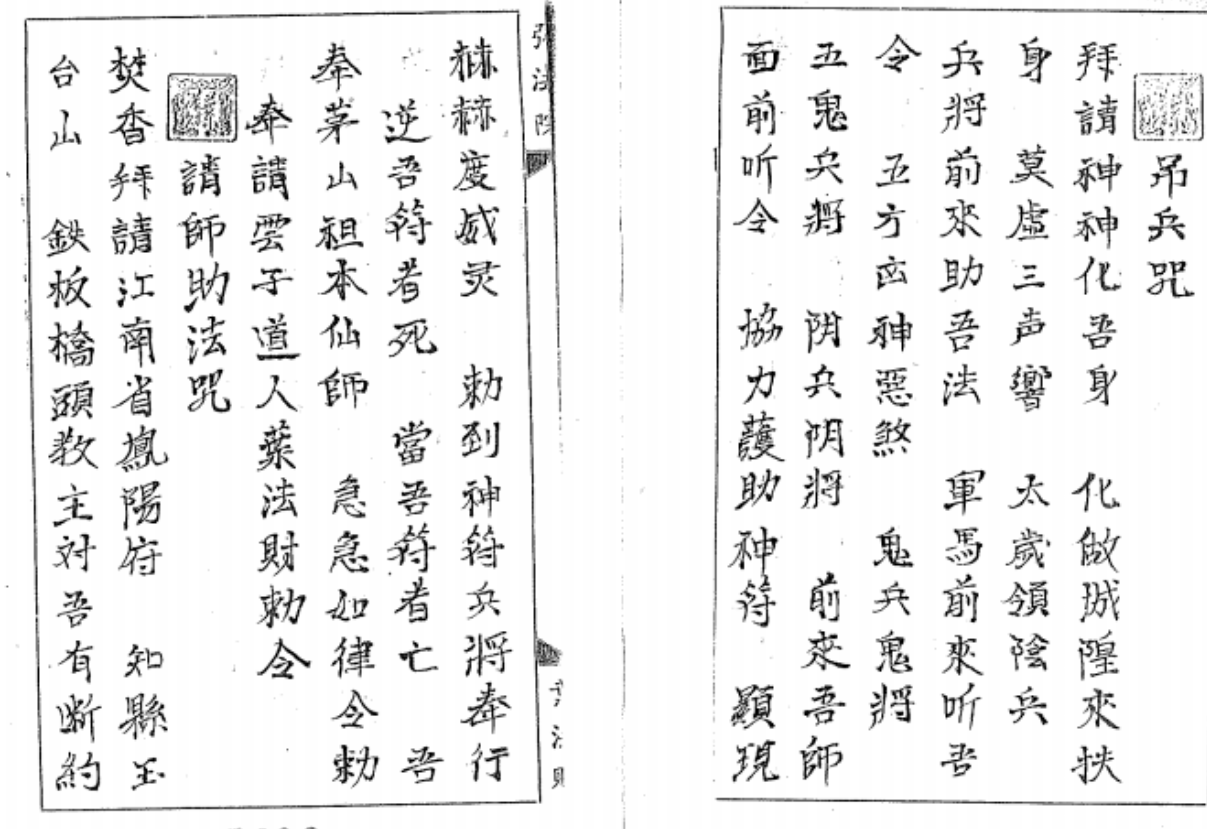 吊兵咒
拜請神神化吾身 化做城隍來扶
身 莫虛三声響 太歲領陰兵
兵將前來助吾法 軍馬前來听吾
令 五方凶神惡煞 鬼兵鬼將
五鬼兵將 阴兵阴將 前來吾師
面前听令 協力護助神符 顯現
赫赫度威灵 勅到神符兵將奉行
逆吾符者死 當吾符者亡 吾
奉茅山祖本仙師 急急如律令勅
奉請雲子道人葉法財勅令
請師助法咒
焚香拜請江南省鳳陽府 知縣玉
台山 鉄板橋頭教主对吾有断約